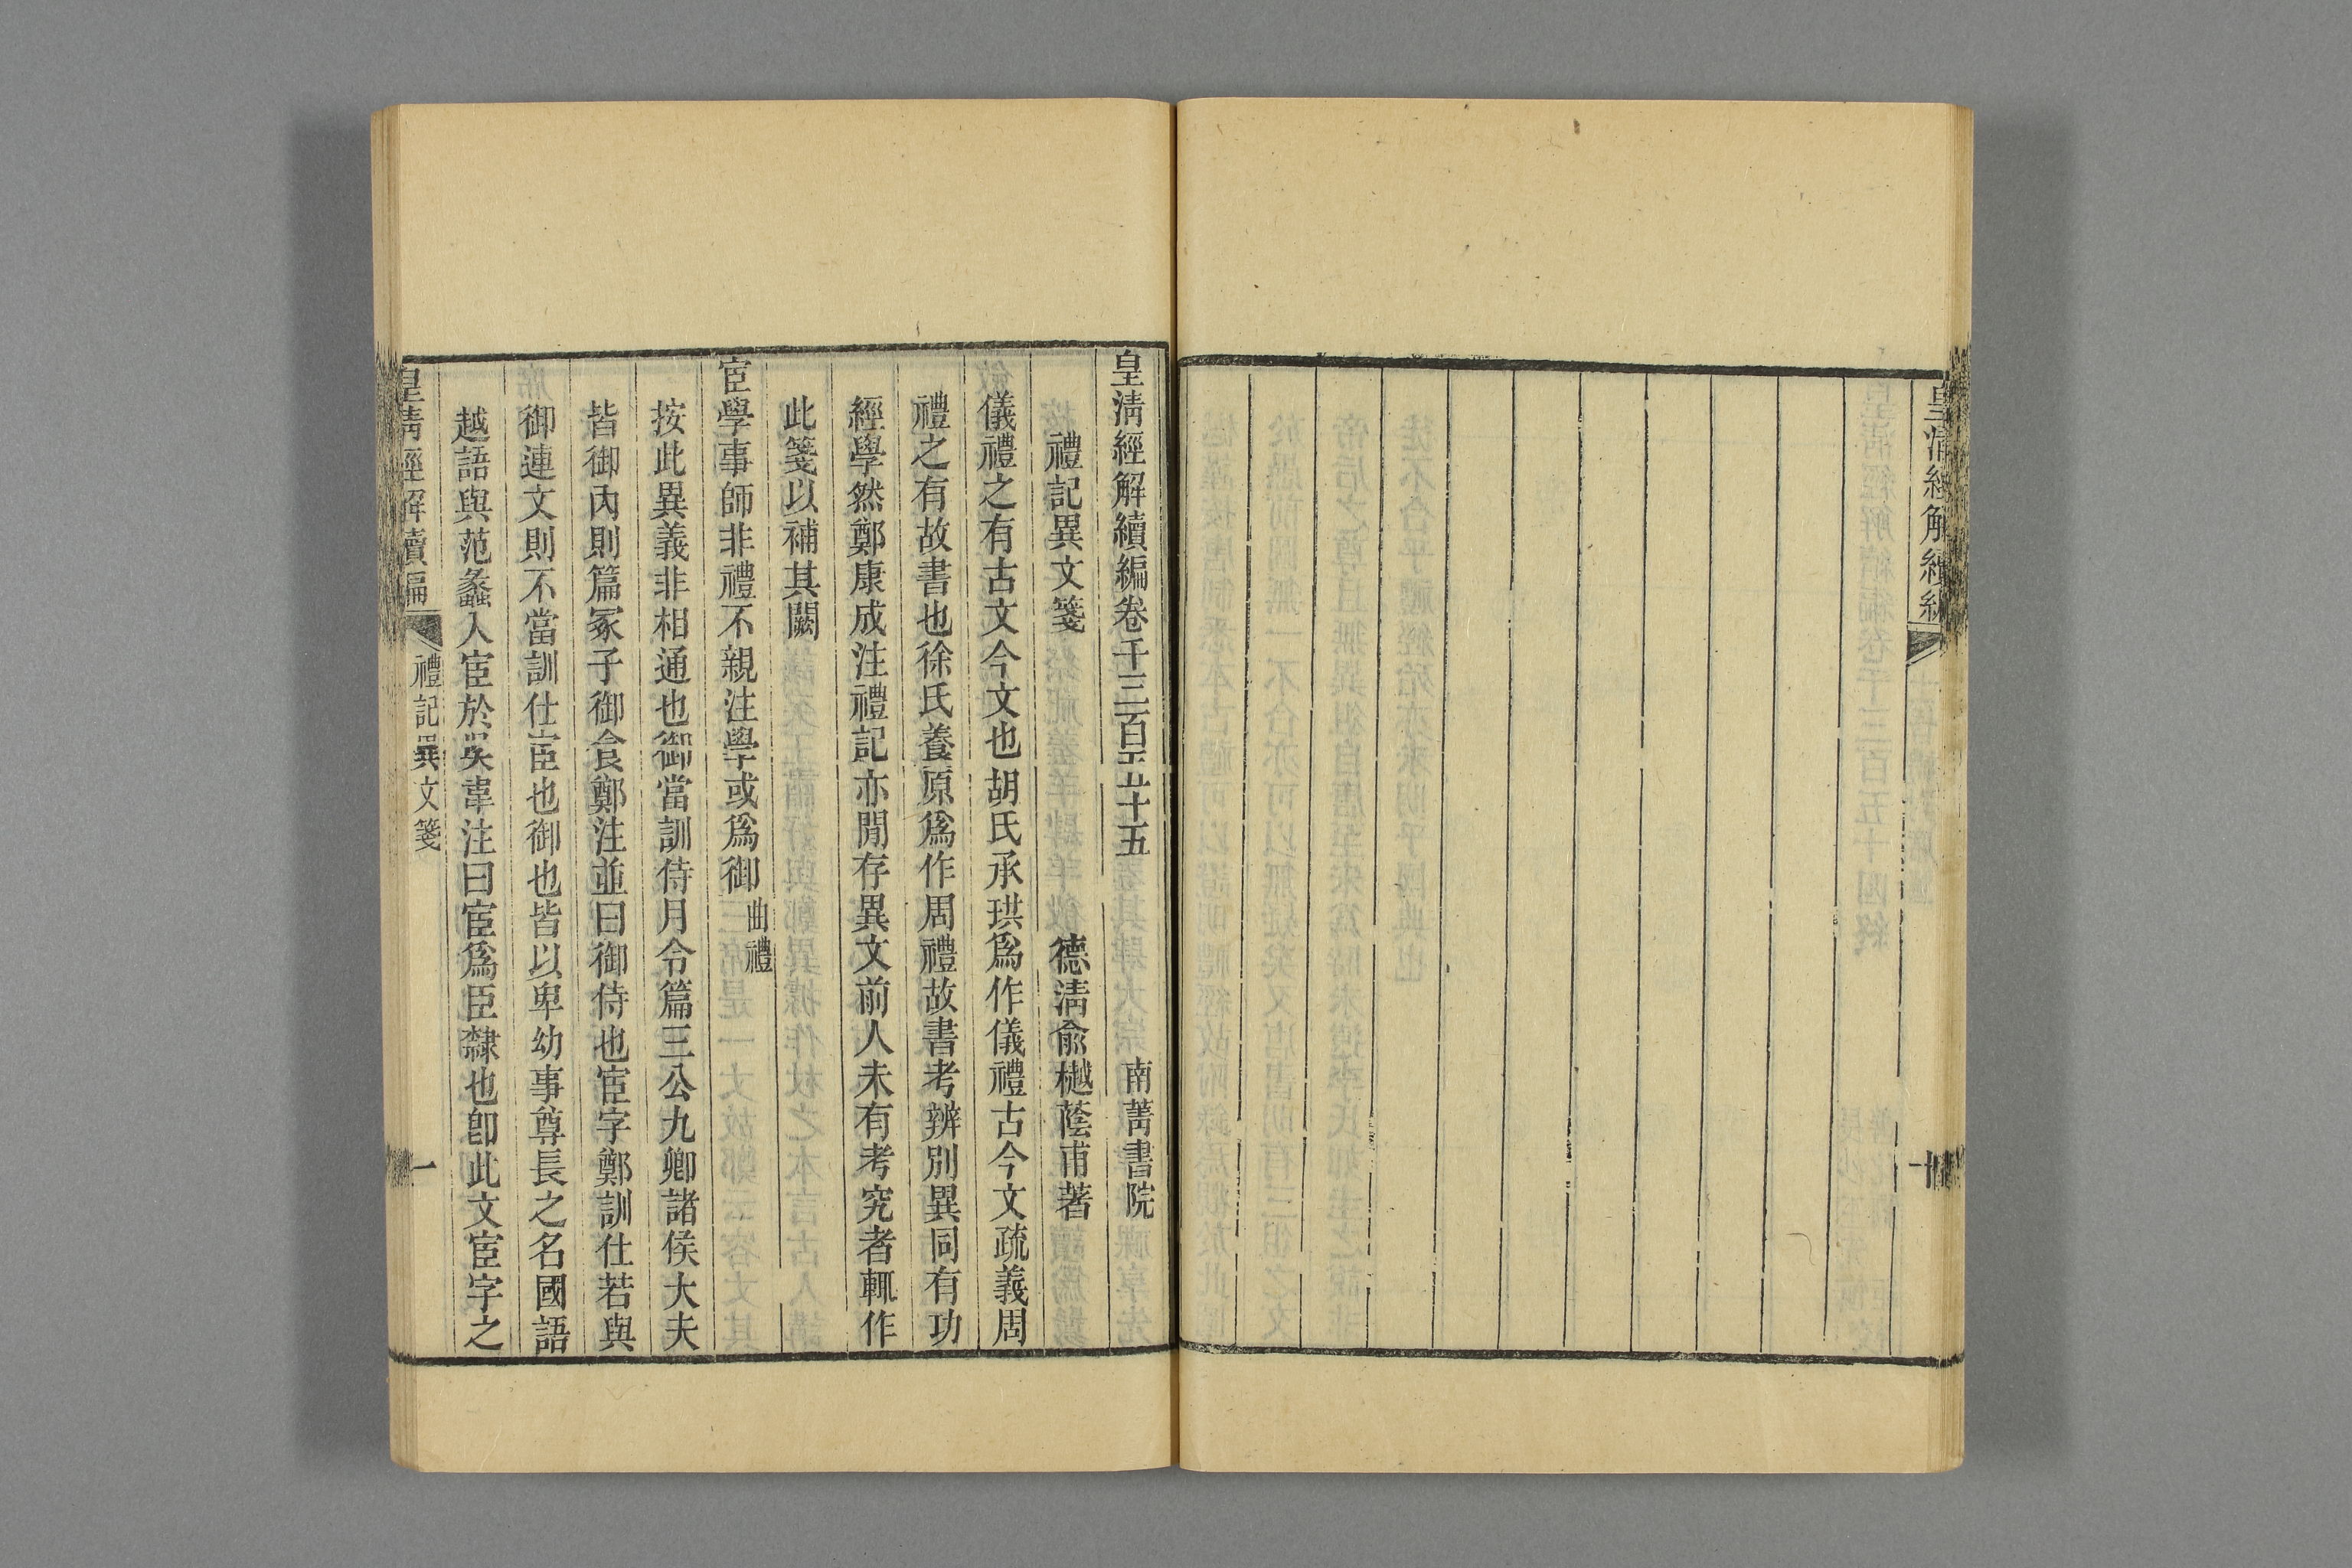 皇清經解續編
皇清經解續編卷千三百五十五　南菁書院
禮記異文箋　德清俞樾蔭甫著
儀禮之有古文今文也胡氏承珙爲作儀禮古今文疏義周
禮之有故書也徐氏養原爲作周禮故書考辨別異同有功
經學然鄭康成注禮記亦閒存異文前人未有考究者輒作
此箋以補其闕
宦學事師非禮不親注學或爲御曲禮
按此異義非相通也御當訓侍月令篇三公九卿諸侯大夫
皆御內則篇冢子御食鄭注並曰御侍也宦字鄭訓仕若與
御連文則不當訓仕宦也御也皆以卑幼事尊長之名國語
越語與范蠡入宦於吳韋注曰宦爲臣隸也卽此文宦字之
皇清經解續編　禮記異文箋　一